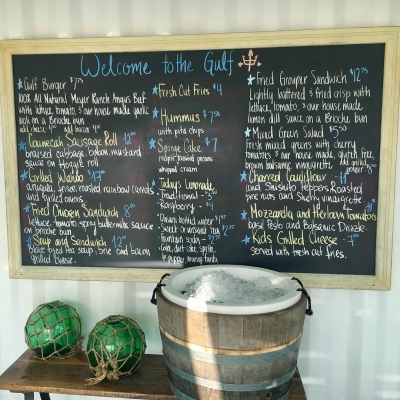 Welcome to the Gulf
Gulf Burger $7.75
100% All Natural Meyer Ranch Angus Beef
with lettuce, tomato, & our house made garlic
on a Brioche bun
add cheese add bacon
Sausage Roll
braised cabbage, onion, mustard
sauce on a roll
Grilled Wahoo
arugula, roasted rainbow carrots
and onions
Fried Chicken Sandwich
lettuce, tomato, spicy buttermilk sauce
on brioche bun
Soup and Sandwich 12
black eyed pea soup, brie and bacon
grilled cheese
Fresh Cut Fries $4
Hummus $7
with pita chips
Sponge Cake $7
toasted pecans
whipped cream
Today's Lemonade
Traditional
Raspberry
bottled water
Sweet or unsweet tea
fountain soda
coke, diet coke, sprite,
dr pepper
Fried Grouper Sandwich $12.75
Lightly battered & fried crisp with
lettuce, tomato, & our house made
lemon dill sauce on a Brioche bun
Mixed Green Salad $5.50
fresh mixed greens with cherry
tomatoes & our house made, gluten free,
brown balsamic vinaigrette
Charred Cauliflower
and Shishito Peppers, Roasted
pine nuts and Sherry vinaigrette
Mozzarella and Heirloom Tomatoes
basil Pesto and Balsamic Drizzle.
Kids Grilled Cheese
served with fresh cut fries.